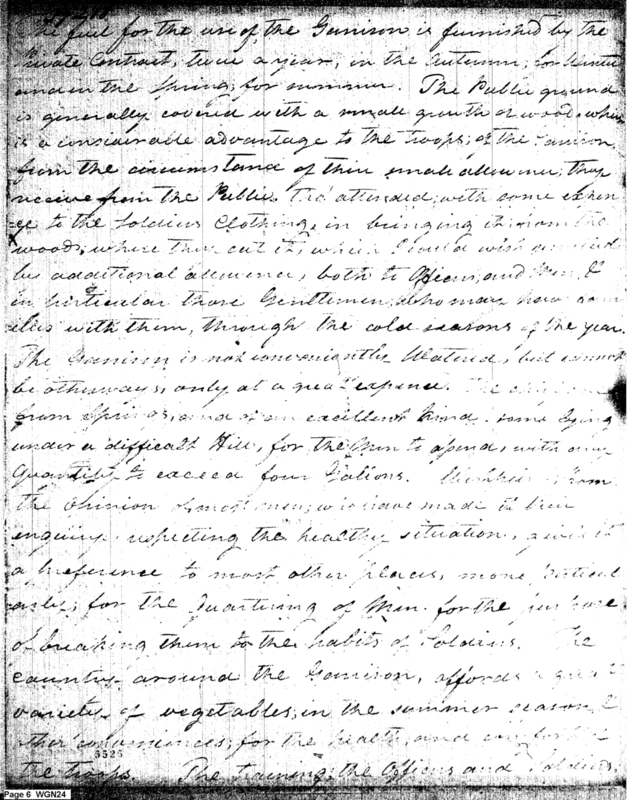 The fuel for the use of the Garrison is furnished by the
Private Contract, twice a year, in the Autumn, for Winter
and in the Spring, for summer. The Public ground
is generally covered with a small growth of wood, which
is a considerable advantage to the troops, of the Garrison,
from the circumstance of their small allowance, they
receive from the Public, tho' attended, with some expen
=ce to the soldiers Clothing, in bringing it from the
woods, where they cut it, which I could wish
be additional allowance, both to Officers, and Men, &
in particular those Gentlemen, who may have fam
ilies with them, through the cold seasons of the year.
The Garrison is not conveniently Watered, but cannot
be otherways, only at a great expence. The
from Springs, and of an excellent kind, some lying
under a difficult Hill, for the Men to asend, with any
Quantity to exceed four Gallons. from
the Opinion of most men, who have made it their
enquiry, respecting the healthy situation, gives it
a preference to most other places, more particul
arly, for the Quartering of Men for the purpose
of breaking them to the habits of Soldiers. The
country around the Garrison, affords a great
variety of vegetables, in the summer season, &
other conveniences, for the health, and comfort of
5525
the troops. The training, the Officers and Soldiers,
Page 6 WGN24